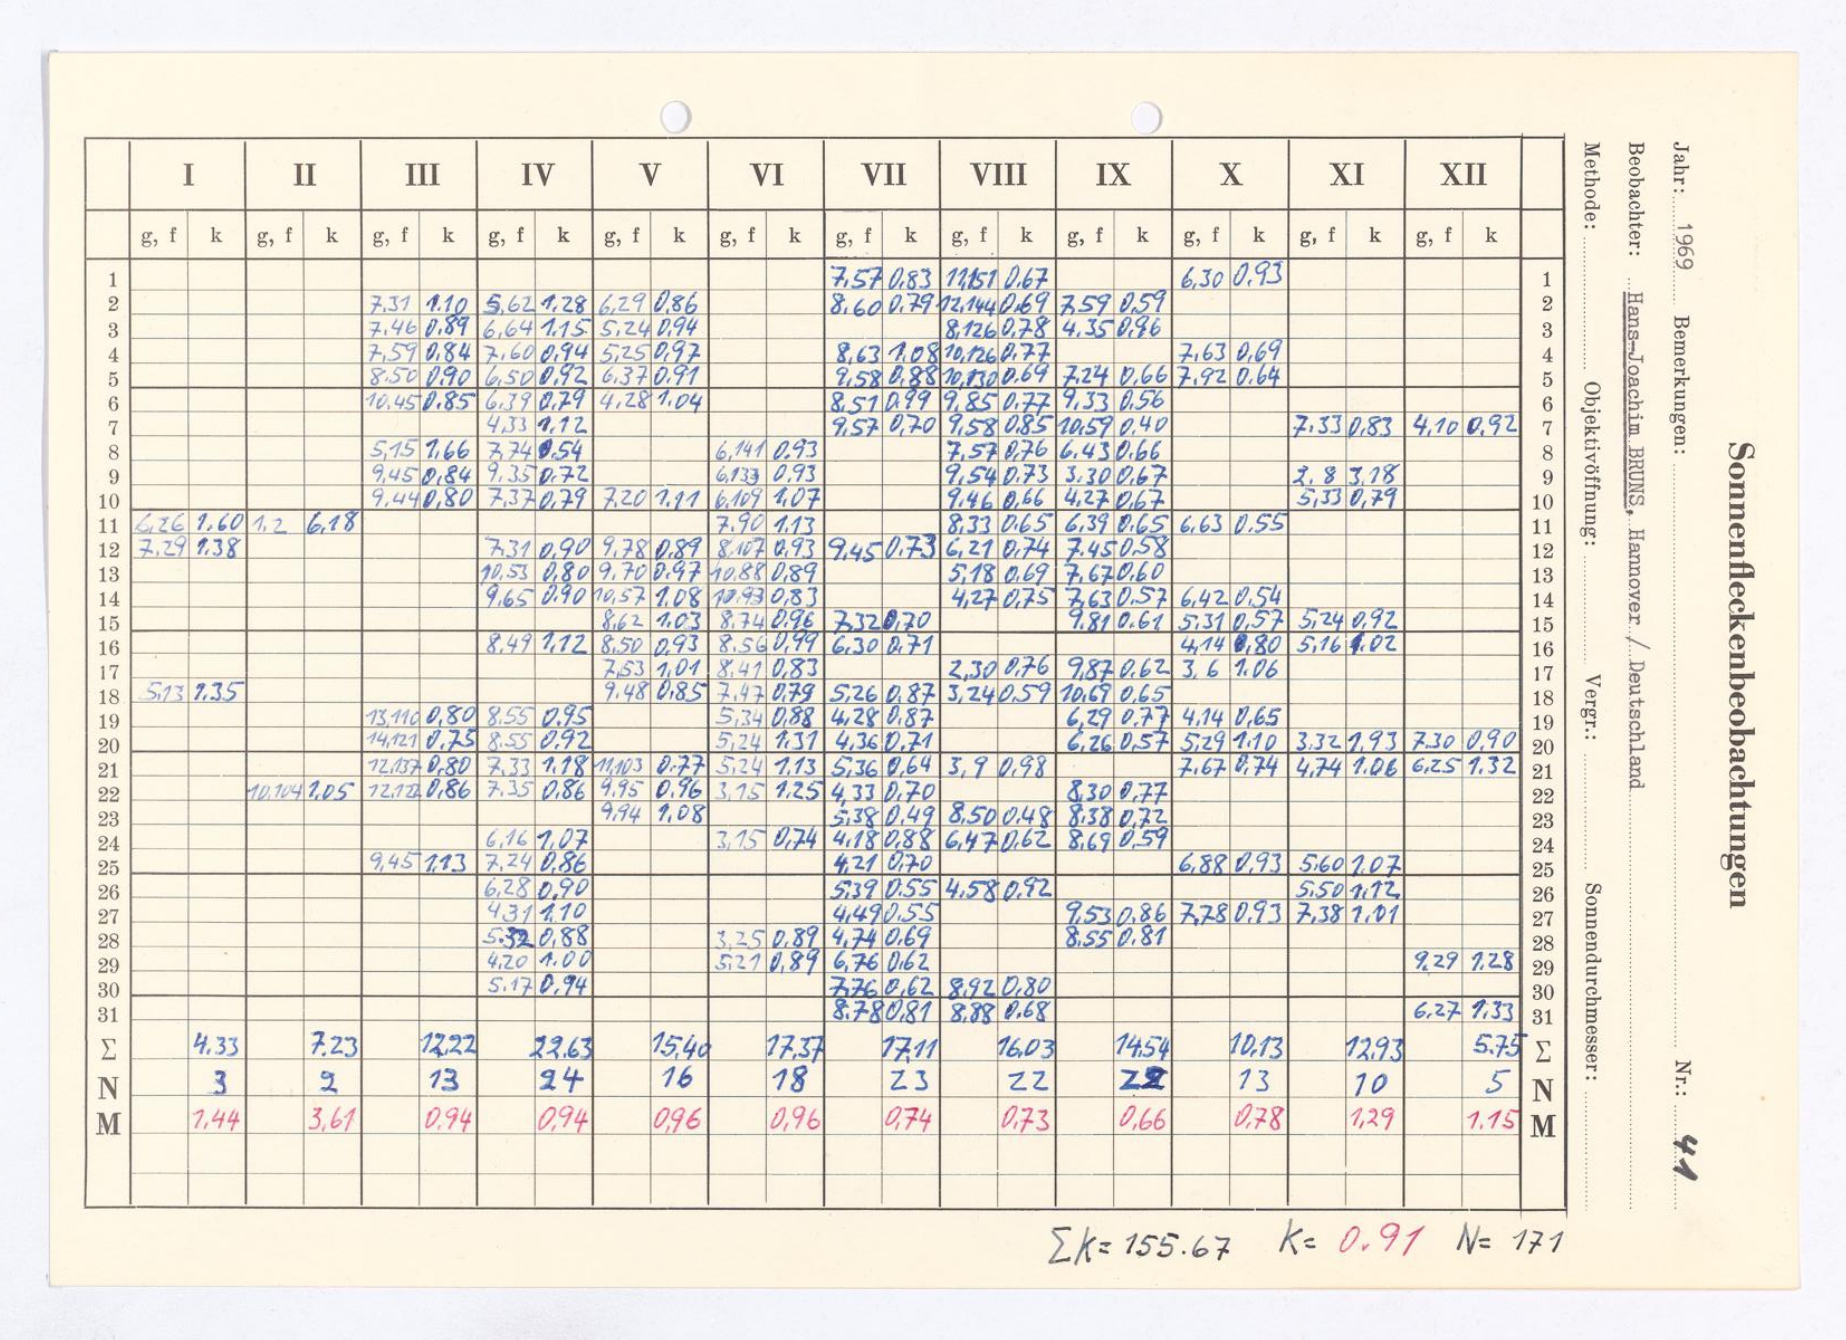 Sonnenfleckenbeobachtungen
Jahr: 1969 Bemerkungen: Nr.: 41
Beobachter: Hans-Joachim BRUNS, Hannover / Deutschland
Methode: Objektivöffnung: Vergr.: Sonnendurchmesser:
I II III IV V VI VII VIII IX X XI XII
g, f k g, f k g, f k g, f k g, f k g, f k g, f k g, f k g, f k g, f k g, f k g, f k
1 7,57 0,83 11,151 0,67 6,30 0,93 1
2 7,31 1.10 5,62 1,28 6,29 0,86 8,60 0,79 12,144 0,69 7,59 0,59 2
3 7,46 0,89 6,64 1.15 5,24 0,94 8,126 0,78 4,35 0,96 3
4 7,59 0,84 7,60 0,94 5,25 0,97 8,63 1,08 10,126 0,77 7,63 0,69 4
5 8,50 0,90 6,50 0,92 6,37 0,91 9,58 0,88 10,130 0,69 7,24 0,66 7,92 0,64 5
6 10,45 0,85 6,39 0,79 4,28 1,04 8,51 0,99 9,85 0,77 9,33 0,56 6
7 4,33 1,12 9,57 0,70 9,58 0,85 10,59 0,40 7,33 0,83 4,10 0,92 7
8 5,15 1,66 7,74 0,54 6,141 0,93 7,57 0,76 6,43 0,66 8
9 9,45 0,84 9,35 0,72 6,133 0,93 9,54 0,73 3,30 0,67 2,8 3,18 9
10 9,44 0,80 7,37 0,79 7,20 1,11 6,109 1,07 9,46 0,66 4,27 0,67 5,33 0,79 10
11 6,26 1,60 1,2 6,18 7,90 1,13 8,33 0,65 6,39 0,65 6,63 0,55 11
12 7,29 1,38 7,31 0,90 9,78 0,89 8,107 0,93 9,45 0,73 6,21 0,74 7,45 0,58 12
13 10,53 0,80 9,70 0,97 10,88 0,89 5,18 0,69 7,67 0,60 13
14 9,65 0,90 10,57 1,08 10,93 0,83 4,27 0,75 7,63 0,57 6,42 0,54 14
15 8,62 1,03 8,74 0,96 7,32 0,70 9,81 0,61 5,31 0,57 5,24 0,92 15
16 8,49 1,12 8,50 0,93 8,56 0,99 6,30 0,71 4,14 0,80 5,16 1,02 16
17 7,53 1,01 8,41 0,83 2,30 0,76 9,87 0,62 3,6 1.06 17
18 5,13 1.35 9,48 0,85 7,47 0,79 5,26 0,87 3,24 0,59 10,69 0,65 18
19 13,110 0,80 8,55 0,95 5,34 0,88 4,28 0,87 6,29 0,77 4,14 0,65 19
20 14,121 0,75 8,55 0,92 5,24 1,31 4,36 0,71 6,26 0,57 5,29 1,10 3,32 1,93 7,30 0,90 20
21 12,137 0,80 7,33 1,18 11,103 0,77 5,24 1,13 5,36 0,64 3,9 0,98 7,67 0,74 4,74 1,06 6,25 1,32 21
22 10,104 1,05 12,122 0,86 7,35 0,86 9,95 0,96 3,15 1,25 4,33 0,70 8,30 0,77 22
23 9,94 1,08 5,38 0,49 8,50 0,48 8,38 0,72 23
24 6,16 1,07 3,15 0,74 4,18 0,88 6,47 0,62 8,69 0,59 24
25 9,45 1,13 7,24 0,86 4,21 0,70 6,88 0,93 5,60 1,07 25
26 6,28 0,90 5,39 0,55 4,58 0,92 5,50 1,12 26
27 4,31 1,10 4,49 0,55 9,53 0,86 7,78 0,93 7,38 1,01 27
28 5,32 0,88 3,25 0,89 4,74 0,69 8,55 0,81 28
29 4,20 1.00 5,21 0,89 6,76 0,62 9,29 1.28 29
30 5,17 0,94 7,76 0,62 8,92 0,80 30
31 8,78 0,81 8,88 0,68 6,27 1,33 31
Σ 4.33 7.23 12,22 22,63 15,40 17,37 17,11 16,03 14,54 10,13 12,93 5.75 Σ
N 3 2 13 24 16 18 23 22 22 13 10 5 N
M 1,44 3,61 0,94 0,94 0,96 0,96 0,74 0,73 0,66 0,78 1,29 1.15 M
Σk= 155.67 K= 0.91 N= 171